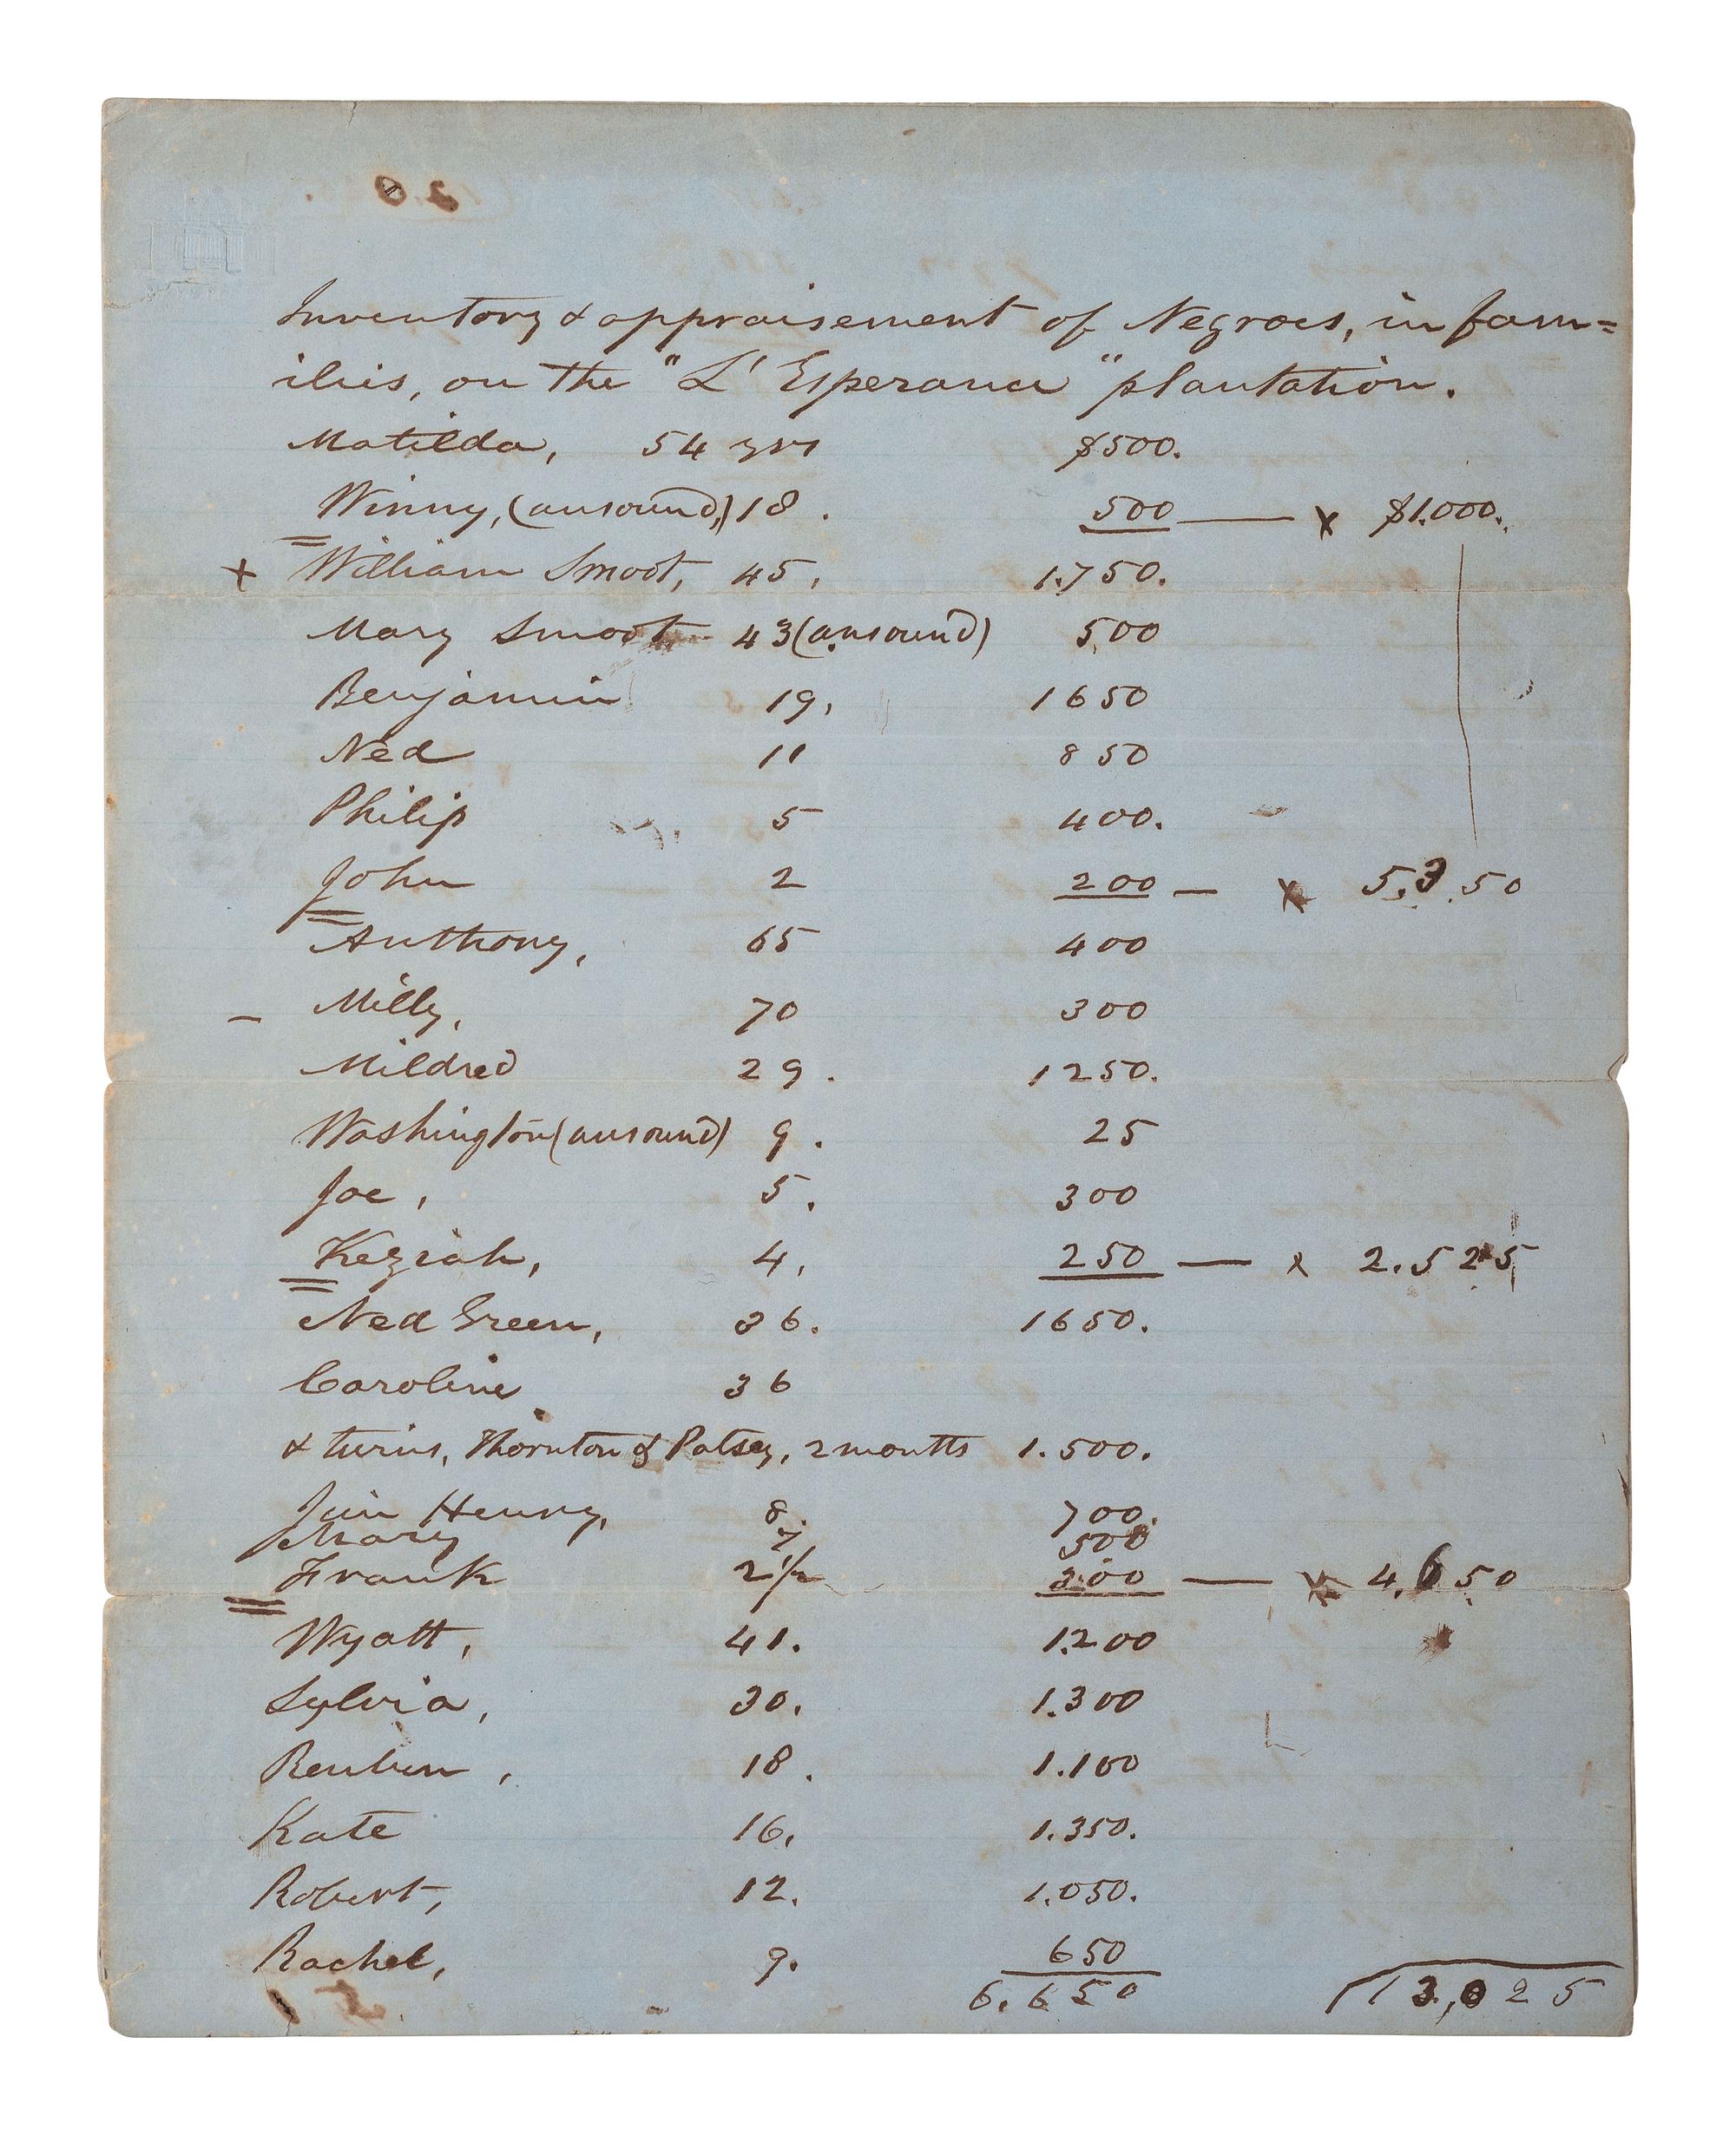 Inventory & appraisement of Negroes, in fam=
ilies, on the "L'Esperance" plantation.
Matilda, 54 yrs $500.
Winny, (unsound,) 18. 500 — x $1.000.
x William Smoot, 45, 1.750.
Mary Smoot 43 (unsound) 500
Benjamin 19, 1650
Ned 11 850
Philip 5 400.
John 2 200 — x 5.350
Anthony, 65 400
– Milly, 70 300
Mildred 29. 1250.
Washington (unsound) 9. 25
Joe, 5. 300
Keziah, 4, 250 — x 2.525
Ned Green, 36. 1650.
Caroline 36
& twins, Thornton & Patsey, 2 months 1.500.
Jim Henry, 8. 700.
Mary 7 500
Frank 2 1/2 300 — x 4,650
Wyatt, 41. 1.200
Sylvia, 30. 1.300
Reuben, 18. 1.100
Kate 16, 1.350.
Robert, 12. 1.050.
Rachel, 9. 650
6.650 13,025